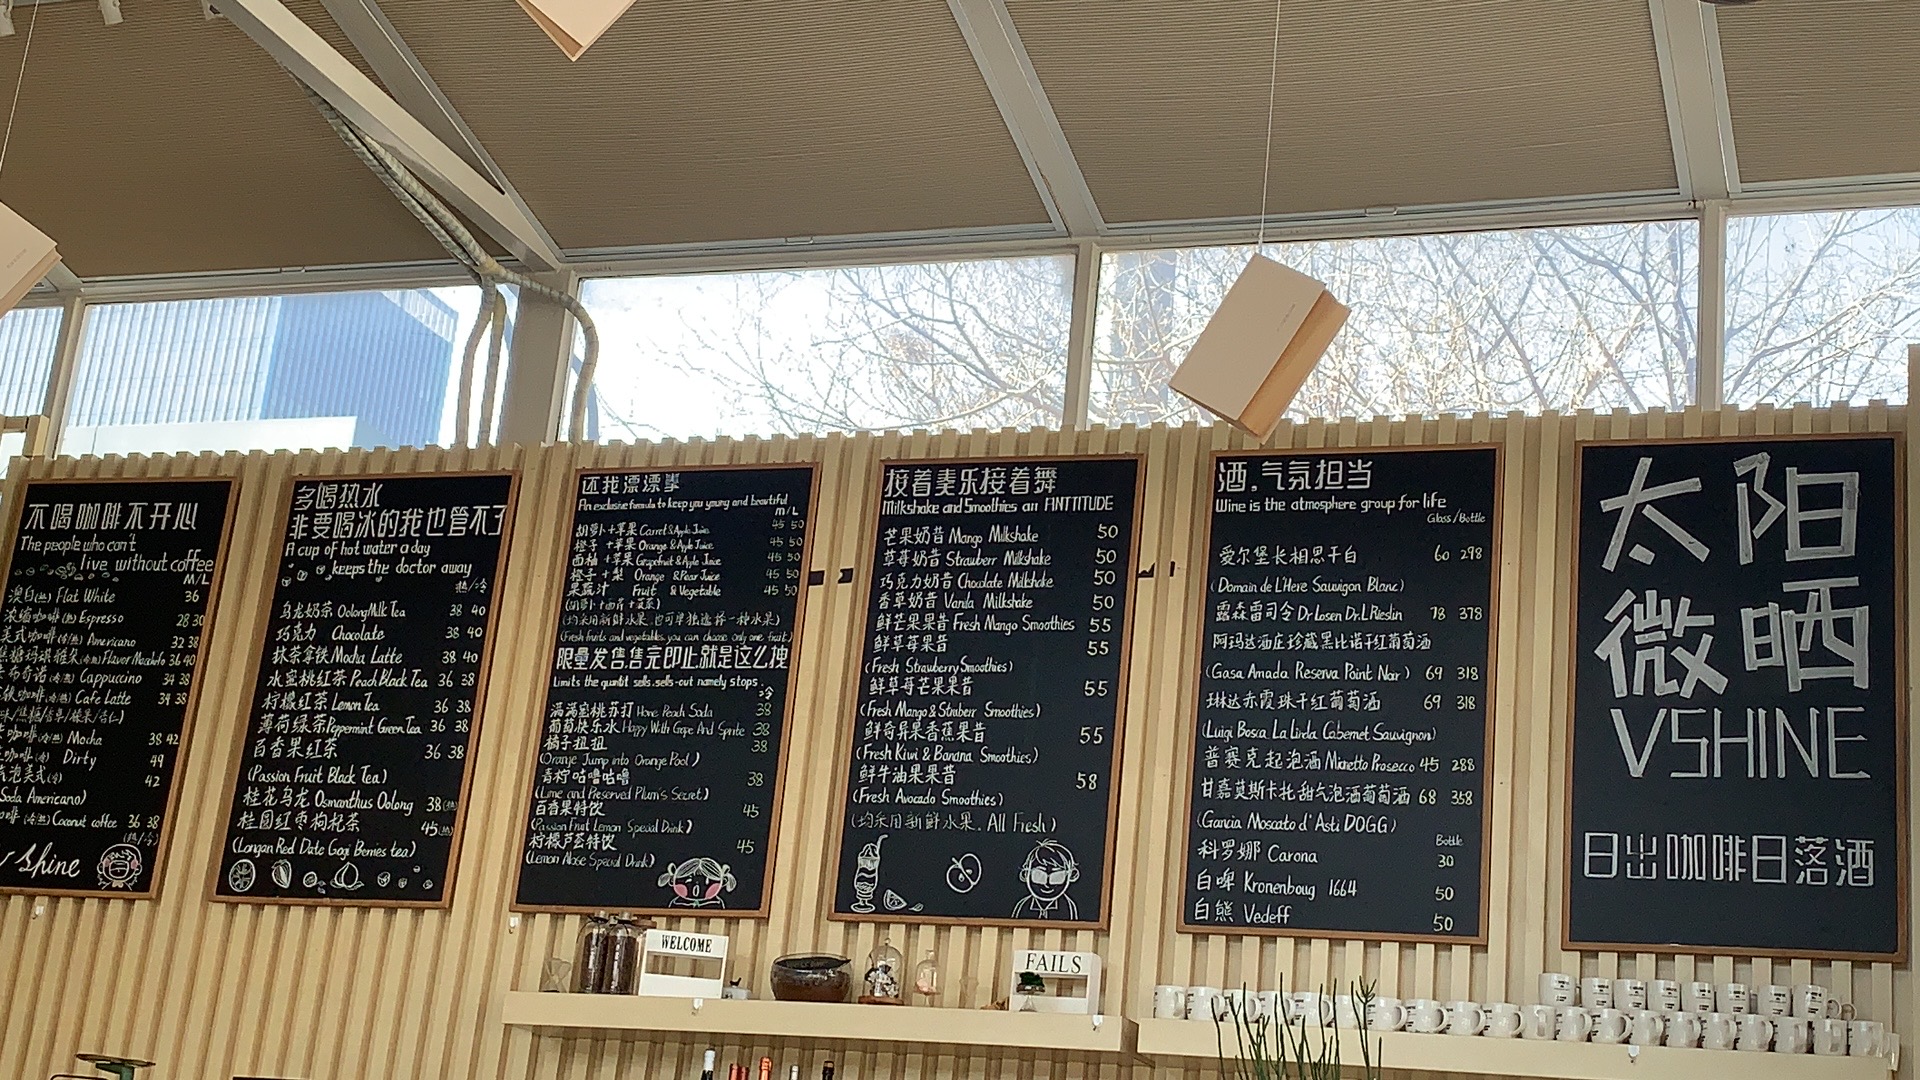 不喝咖啡不开心
The people who can't
live without coffee
M/L
澳白(热) Flat White 36
浓缩咖啡(热) Espresso 28 30
美式咖啡(冷/热) Americano 32 38
焦糖玛琪雅朵(冷/热) Flavor Macchiato 36 40
布奇诺(热) Cappuccino 34 38
铁咖啡(冷/热) Cafe Latte 34 38
咖啡(冷/热) Mocha 38 42
咖啡(冷) Dirty 49
气泡美式(冷) 42
Soda Americano)
咖啡(冷/热) Coconut coffee 36 38
(热/冷)
Shine
多喝热水
非要喝冰的我也管不了
A cup of hot water a day
keeps the doctor away
热/冷
乌龙奶茶 Oolong Milk Tea 38 40
巧克力 Chocolate 38 40
抹茶拿铁 Mocha Latte 38 40
水蜜桃红茶 Peach Black Tea 36 38
柠檬红茶 Lemon Tea 36 38
薄荷绿茶 Peppermint Green Tea 36 38
百香果红茶 36 38
(Passion Fruit Black Tea)
桂花乌龙 Osmanthus Oolong 38(热)
桂圆红枣枸杞茶 45(热)
(Longan Red Date Gogi Berries tea)
还我漂漂拳
An exclusive formula to keep you young and beautiful
M/L
胡萝卜+苹果 Carret & Apple Juice 45 50
橙子+苹果 Orange & Apple Juice 45 50
西柚+苹果 Grapefruit & Apple Juice 45 50
橙子+梨 Orange & Pear Juice 45 50
果蔬汁 Fruit & Vegetable 45 50
(胡萝卜+西芹+菠菜)
(均采用新鲜水果,也可单独选择一种水果)
(Fresh fruits and vegetables, you can choose only one fruit)
限量发售,售完即止,就是这么拽
Limits the quantit sells, sells-out namely stops.
冷
满满蜜桃苏打 Hone Peach Soda 38
葡萄快乐水 Happy With Grape And Sprite 38
橘子扭扭 38
(Orange Jump into Orange Pool)
青柠咕噜咕噜 38
(Lime and Preserved Plum's Secret)
百香果特饮 45
(Passion Fruit Lemon Special Drink)
柠檬芦荟特饮 45
(Lemon Alose Special Drink)
接着奏乐接着舞
Milkshake and Smoothies an ANTTITUDE
芒果奶昔 Mango Milkshake 50
草莓奶昔 Strawberr Milkshake 50
巧克力奶昔 Chocolate Milkshake 50
香草奶昔 Vanila Milkshake 50
鲜芒果果昔 Fresh Mango Smoothies 55
鲜草莓果昔 55
(Fresh Strawberry Smoothies)
鲜草莓芒果果昔 55
(Fresh Mango & Straberr Smoothies)
鲜奇异果香蕉果昔 55
(Fresh Kiwi & Banana Smoothies)
鲜牛油果果昔 58
(Fresh Avocado Smoothies)
(均采用新鲜水果. All Fresh)
酒,气氛担当
Wine is the atmosphere group for life
Glass/Bottle
爱尔堡长相思干白 60 298
(Domain de L'Here Sauvigon Blanc)
露森雷司令 Dr Losen Dr.L Rieslin 78 378
阿玛达酒庄珍藏黑比诺干红葡萄酒
(Gasa Amada Reserva Point Noir) 69 318
琳达赤霞珠干红葡萄酒 69 318
(Luigi Bosca La Linda Cabernet Sauvignon)
普赛克起泡酒 Mionetto Prosecco 45 288
甘嘉莫斯卡托甜气泡酒葡萄酒 68 358
(Gancia Moscato d'Asti DOGG)
Bottle
科罗娜 Carona 30
白啤 Kronenboug 1664 50
白熊 Vedeff 50
太阳
微晒
VSHINE
日出咖啡日落酒
WELCOME
FAILS